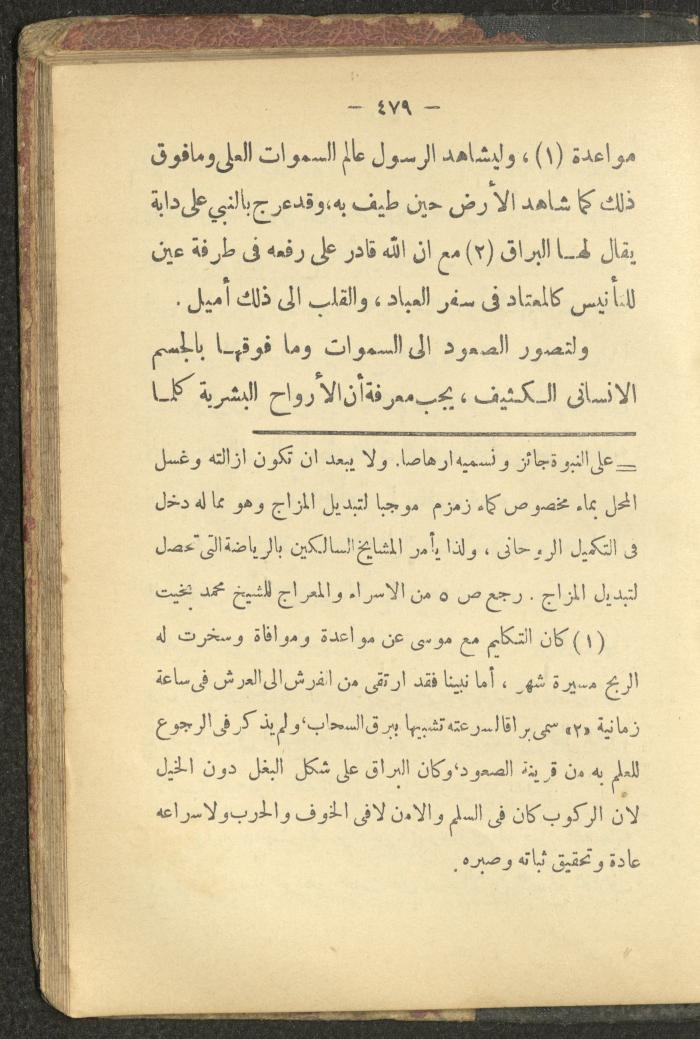 — ٤٧٩ —
مواعدة (١) ، وليشاهد الرسول عالم السموات العلى وما فوق
ذلك كما شاهد الأرض حين طيف به، وقد عرج بالنبي على دابة
يقال لهـا البراق (٢) مع ان الله قادر على رفعه فى طرفة عين
للتأنيس كالمعتاد فى سفر العباد ، والقلب الى ذلك أميل .
ولتصور الصعود الى السموات وما فوقهـا بالجسم
الانسانى الـكـثيف ، يجب معرفة أن الأرواح البشرية كلمـا
= على النبوة جائز ونسميه ارهاصا. ولا يبعد ان تكون ازالته وغسل
المحل بماء مخصوص كماء زمزم موجبا لتبديل المزاج وهو مما له دخل
فى التكميل الروحانى ، ولذا يأمر المشايخ السالكين بالرياضة التى تحصل
لتبديل المزاج . رجع ص ٥ من الاسراء والمعراج للشيخ محمد بخيت
(١) كان التكليم مع موسى عن مواعدة وموافاة وسخرت له
الريح مسيرة شهر ، أما نبينا فقد ارتقى من الفرش الى العرش فى ساعة
زمانية «٢» سمى براقا لسرعته تشبيها ببرق السحاب، ولم يذكر فى الرجوع
للعلم به من قرينة الصعود، وكان البراق على شكل البغل دون الخيل
لان الركوب كان فى السلم والامن لا فى الخوف والحرب ولاسراعه
عادة وتحقيق ثباته وصبره .